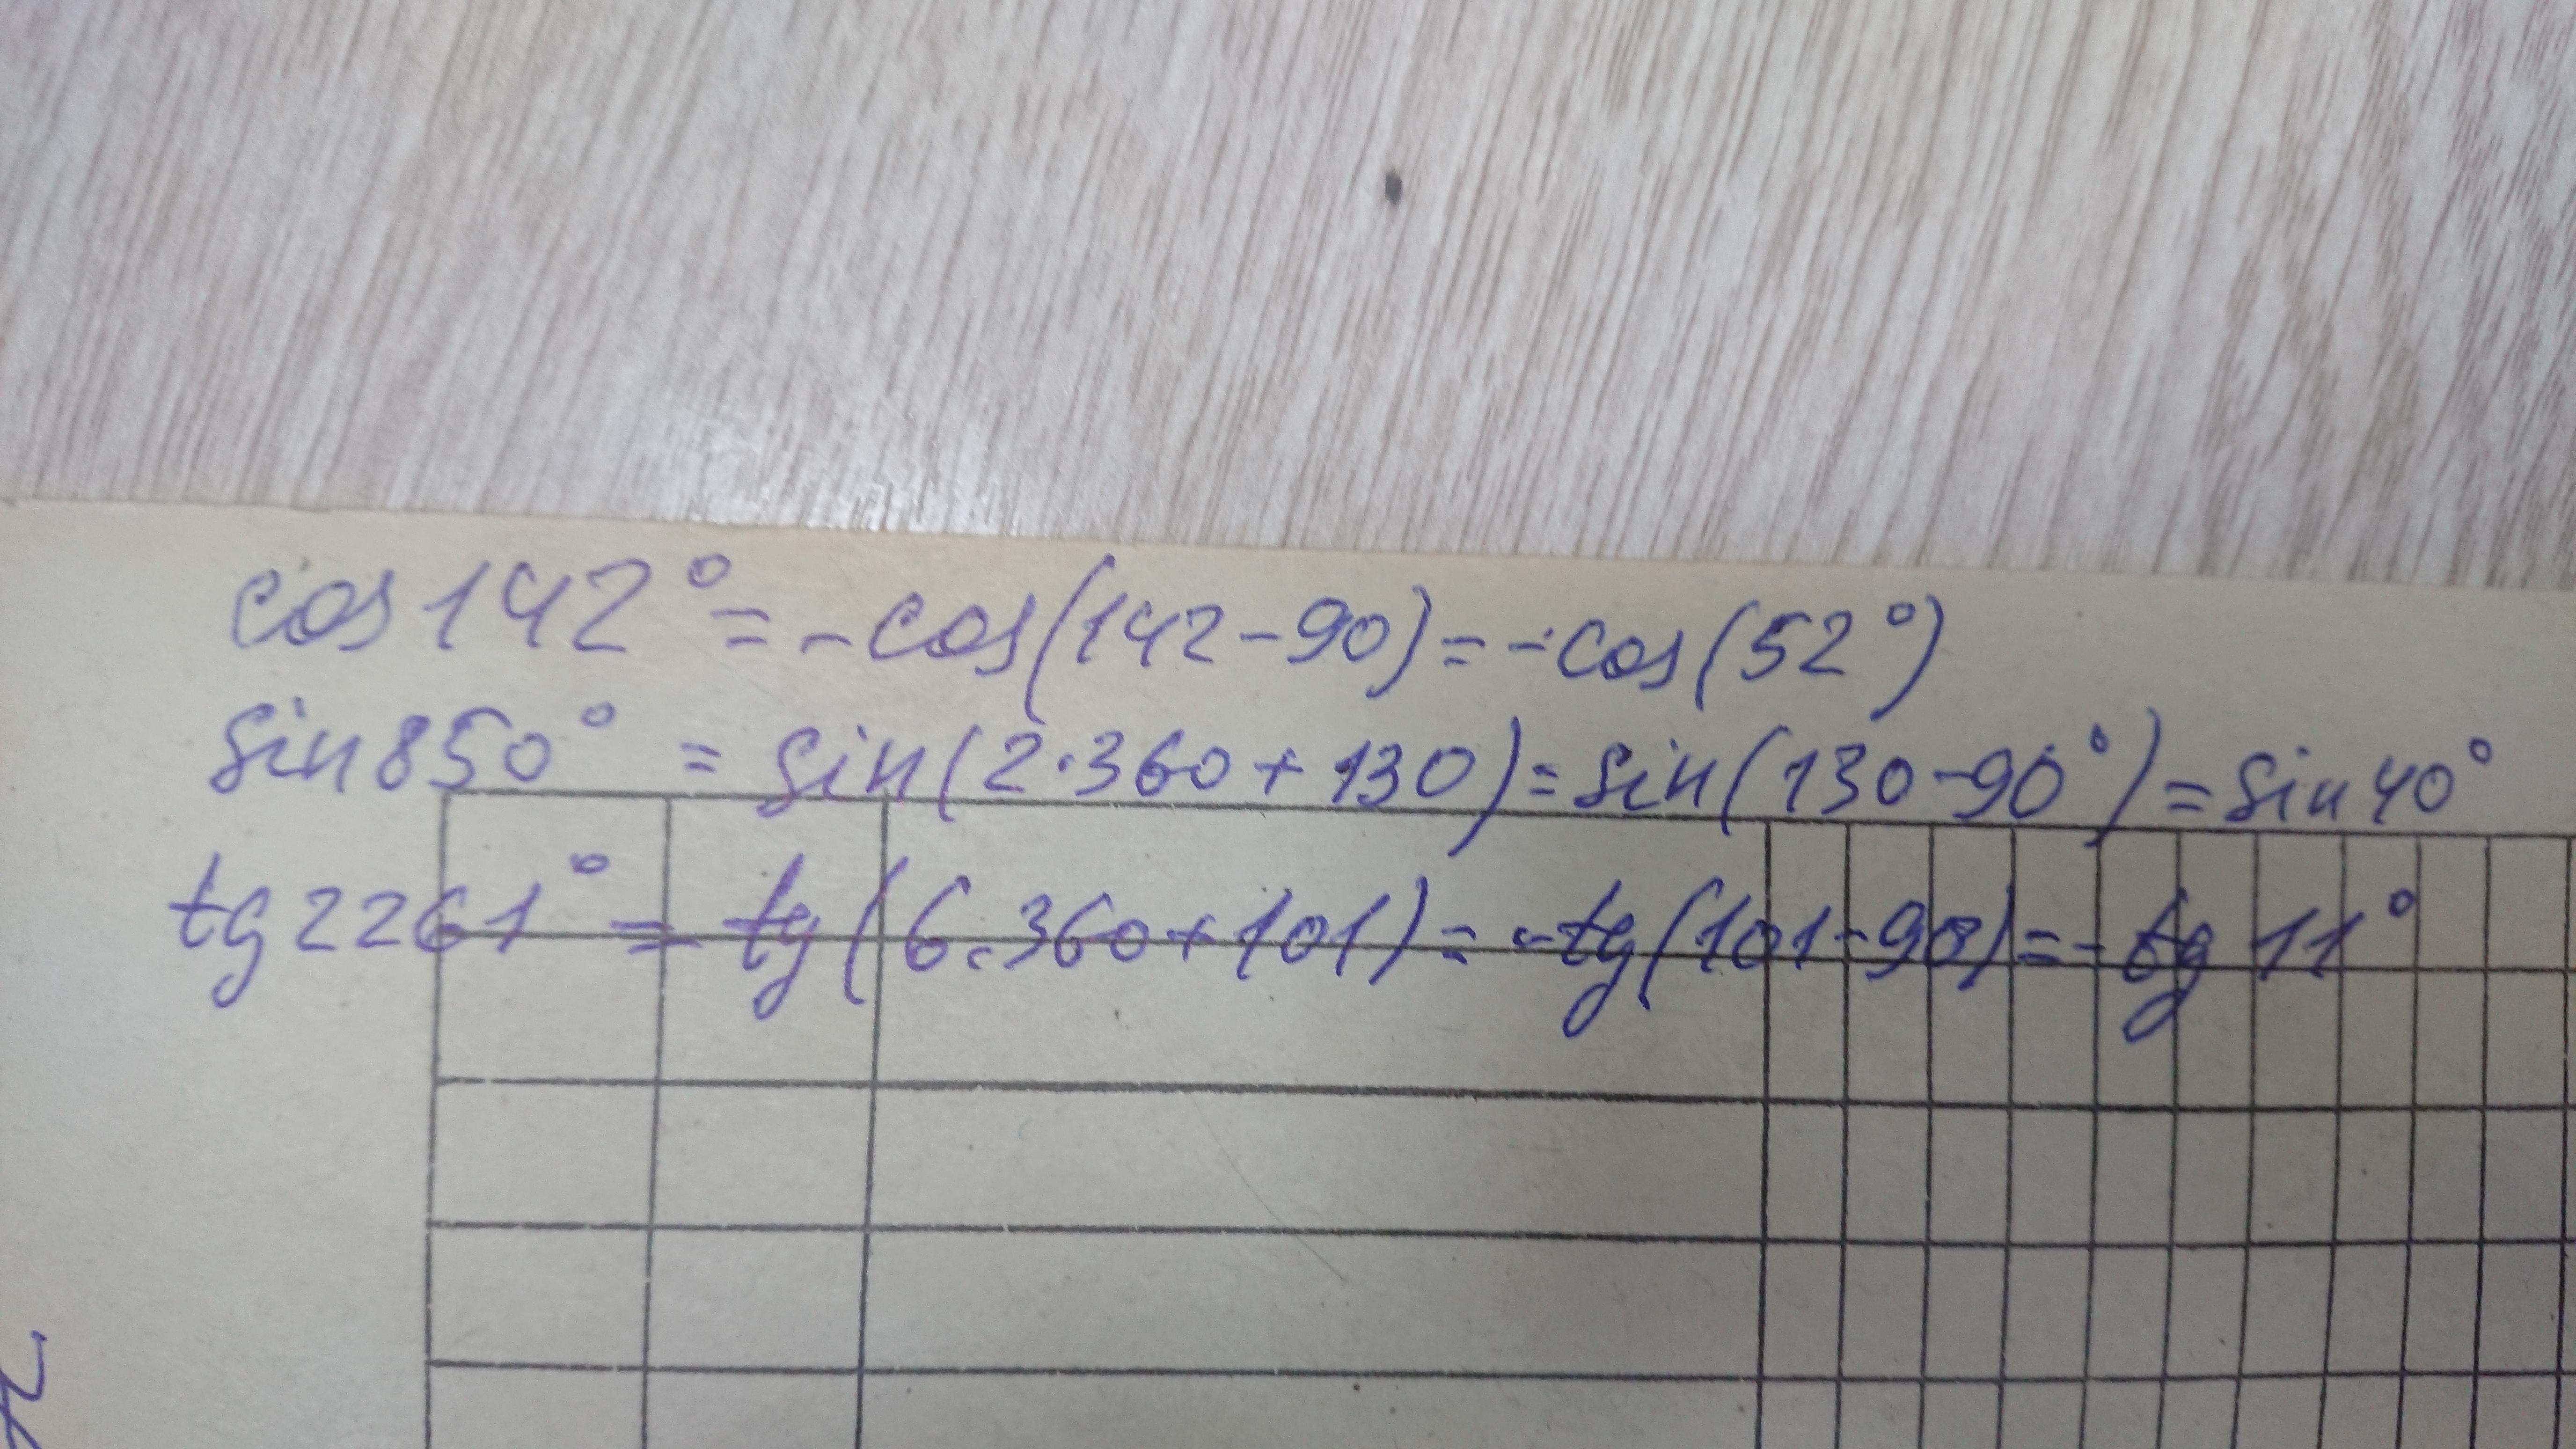 cos 142° = -cos(142-90) = -cos(52°)
sin 850° = sin(2·360+130) = sin(130-90°) = sin 40°
tg 2261° = tg(6·360+101) = -tg(101-90) = -tg 11°